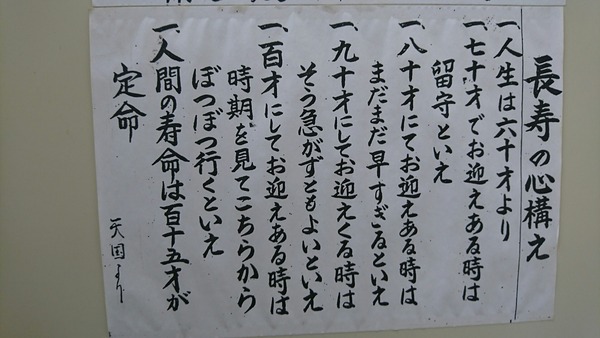 長寿の心構え
一、人生は六十才より
一、七十才でお迎えある時は
留守といえ
一、八十才にてお迎えある時は
まだまだ早すぎるといえ
一、九十才にしてお迎えくる時は
そう急がずともよいといえ
一、百才にしてお迎えある時は
時期を見てこちらから
ぼつぼつ行くといえ
一、人間の寿命は百十五才が
定命
天国より